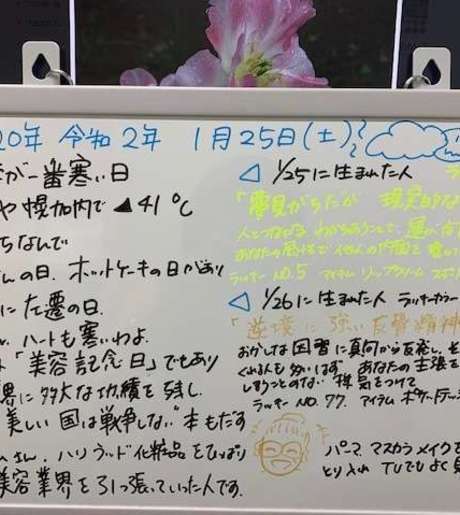 20年 令和2年 1月25日(土)
が一番寒い日
や 幌加内で ▲41℃
ちなんで
んの日、ホットケーキの日があり
に左遷の日.
ハートも寒いわよ.
「美容記念日」でもあり
界に多大な功績を残し.
美しい国は戦争しない"本もだす
さん、ハリウッド化粧品をひっぱり
美容業界を引っ張っていった人です.
◁ 1/25に生まれた人
「夢見がちだが 現実的な
ラッキー NO.5 アイテム リップクリーム
◁ 1/26に生まれた人 ラッキーカラー
「逆境に強い反骨精神
おかしな因習に真向から反発し、
くれる人も多いはず. あなたの主張を
ラッキー NO.77. アイテム
パーマ、マスカラ メイクを
とり入れ TVでもよく見